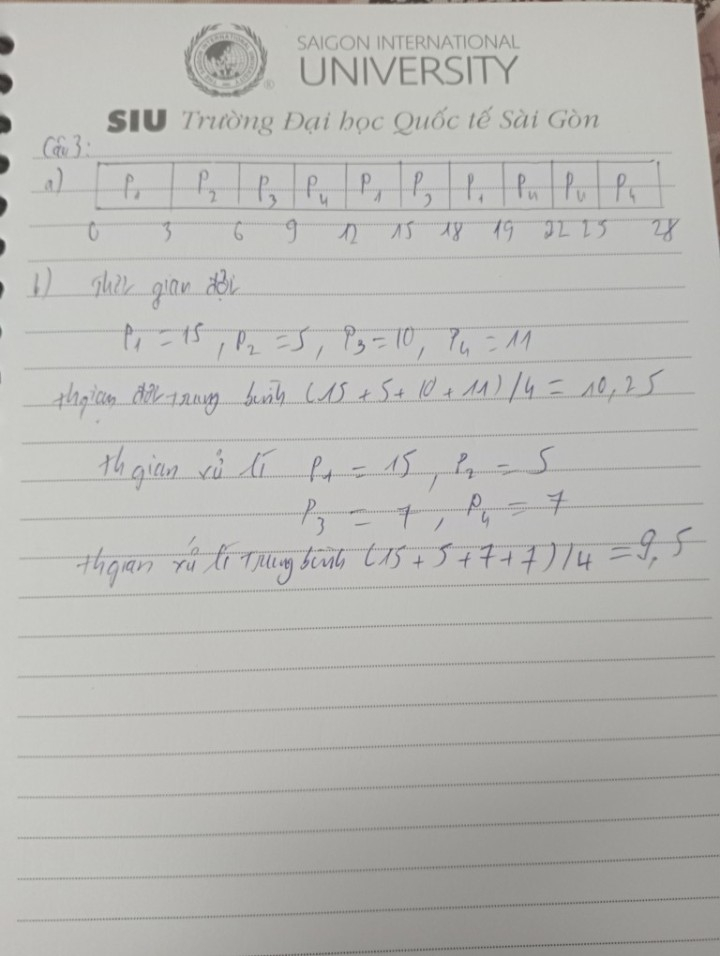 SAIGON INTERNATIONAL
UNIVERSITY
SIU Trường Đại học Quốc tế Sài Gòn
Câu 3:
a) P1 P2 P3 P4 P1 P3 P1 P4 P4 P4
0 3 6 9 12 15 18 19 22 25 28
b) Thời gian đợi
P1 = 15, P2 = 5, P3 = 10, P4 = 11
thgian đợi trung bình (15 + 5 + 10 + 11) / 4 = 10,25
th gian xử lí P1 = 15, P2 = 5
P3 = 7, P4 = 7
thgian xử lí trung bình (15 + 5 + 7 + 7) / 4 = 9,5